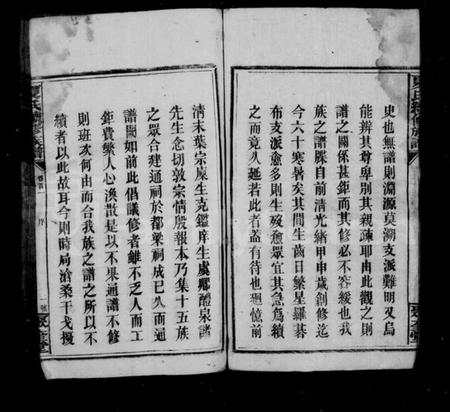 史也無譜則淵源莫溯支派難明又烏
能辨其尊卑別其親疎耶由此觀之則
譜之關係甚鉅而其修必不容緩也我
族之譜牒自前清光緒甲申歲創修迄
今六十寒暑矣其間生齒日繁星羅碁
布支派愈多則生殁愈眾宜其急為續
之而竟久延若此者蓋有待也迴憶前
清末葉宗原生克鑑庠生虞卿醴泉諸
先生念切敦宗情殷報本乃集十五族
之眾合建通祠於都梁祠成已久而通
譜闕如前此倡議修者雖不乏人而工
鉅費繁人心渙散是以不果通譜不修
則班次何由而合我族之譜之所以不
續者以此故耳今則時局滄桑干戈擾
卷首
序